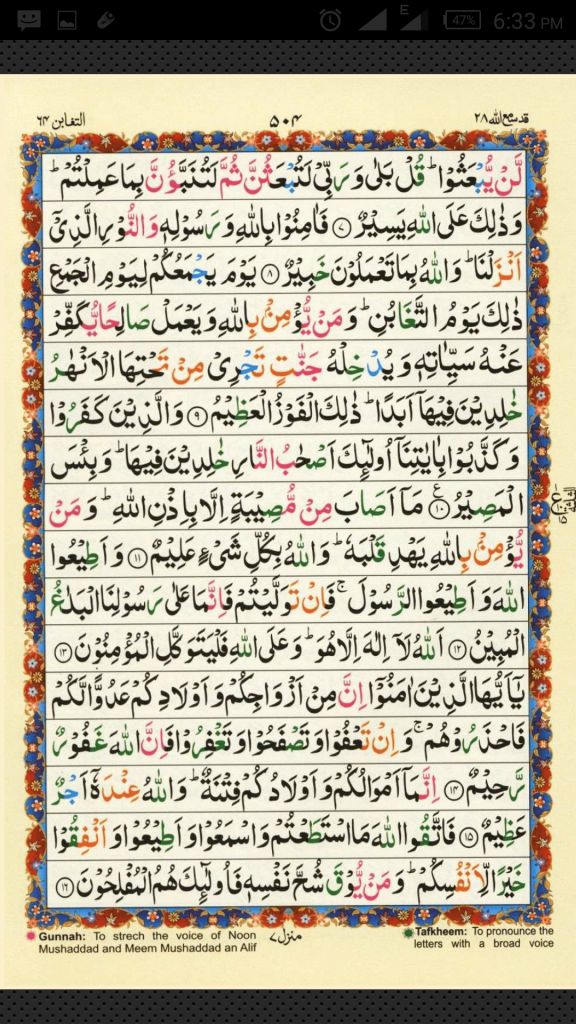 E 47% 6:33 PM
التغابن ٦٤ ٥٠٤ قد سمع الله ٢٨
لَّنۡ يُّبۡعَثُوۡا‌ؕ قُلۡ بَلٰى وَرَبِّىۡ لَتُبۡعَثُنَّ ثُمَّ لَـتُنَبَّؤُنَّ بِمَا عَمِلۡتُمۡ‌ؕ
وَذٰلِكَ عَلَى اللّٰهِ يَسِيۡرٌ‏ ﴿۷﴾ فَاٰمِنُوۡا بِاللّٰهِ وَرَسُوۡلِهٖ وَالنُّوۡرِ الَّذِىۡۤ
اَنۡزَلۡنَا‌ؕ وَاللّٰهُ بِمَا تَعۡمَلُوۡنَ خَبِيۡرٌ‏ ﴿۸﴾ يَوۡمَ يَجۡمَعُكُمۡ لِيَوۡمِ الۡجَمۡعِ‌
ذٰلِكَ يَوۡمُ التَّغَابُنِ‌ؕ وَمَنۡ يُّؤۡمِنۡۢ بِاللّٰهِ وَيَعۡمَلۡ صَالِحًـا يُّكَفِّرۡ
عَنۡهُ سَيِّاٰتِهٖ وَيُدۡخِلۡهُ جَنّٰتٍ تَجۡرِىۡ مِنۡ تَحۡتِهَا الۡاَنۡهٰرُ
خٰلِدِيۡنَ فِيۡهَاۤ اَبَدًا‌ؕ ذٰلِكَ الۡفَوۡزُ الۡعَظِيۡمُ‏ ﴿۹﴾ وَالَّذِيۡنَ كَفَرُوۡا
وَكَذَّبُوۡا بِاٰيٰتِنَاۤ اُولٰٓٮِٕكَ اَصۡحٰبُ النَّارِ خٰلِدِيۡنَ فِيۡهَا‌ؕ وَبِئۡسَ
الۡمَصِيۡرُ‏ ﴿۱۰﴾ مَاۤ اَصَابَ مِنۡ مُّصِيۡبَةٍ اِلَّا بِاِذۡنِ اللّٰهِ‌ؕ وَمَنۡ
يُّؤۡمِنۡۢ بِاللّٰهِ يَهۡدِ قَلۡبَهٗ‌ؕ وَاللّٰهُ بِكُلِّ شَىۡءٍ عَلِيۡمٌ‏ ﴿۱۱﴾ وَاَطِيۡعُوا
اللّٰهَ وَاَطِيۡعُوا الرَّسُوۡلَ‌ۚ فَاِنۡ تَوَلَّيۡتُمۡ فَاِنَّمَا عَلٰى رَسُوۡلِنَا الۡبَلٰغُ
الۡمُبِيۡنُ‏ ﴿۱۲﴾ اَللّٰهُ لَاۤ اِلٰهَ اِلَّا هُوَ‌ؕ وَعَلَى اللّٰهِ فَلۡيَتَوَكَّلِ الۡمُؤۡمِنُوۡنَ‏ ﴿۱۳﴾
يٰۤاَيُّهَا الَّذِيۡنَ اٰمَنُوۡۤا اِنَّ مِنۡ اَزۡوَاجِكُمۡ وَاَوۡلَادِكُمۡ عَدُوًّا لَّكُمۡ
فَاحۡذَرُوۡهُمۡ‌ۚ وَاِنۡ تَعۡفُوۡا وَتَصۡفَحُوۡا وَتَغۡفِرُوۡا فَاِنَّ اللّٰهَ غَفُوۡرٌ
رَّحِيۡمٌ‏ ﴿۱۴﴾ اِنَّمَاۤ اَمۡوَالُكُمۡ وَاَوۡلَادُكُمۡ فِتۡنَةٌ‌ؕ وَاللّٰهُ عِنۡدَهٗۤ اَجۡرٌ
عَظِيۡمٌ‏ ﴿۱۵﴾ فَاتَّقُوا اللّٰهَ مَا اسۡتَطَعۡتُمۡ وَاسۡمَعُوۡا وَاَطِيۡعُوۡا وَاَنۡفِقُوۡا
خَيۡرًا لِّاَنۡفُسِكُمۡ‌ؕ وَمَنۡ يُّوۡقَ شُحَّ نَفۡسِهٖ فَاُولٰٓٮِٕكَ هُمُ الۡمُفۡلِحُوۡنَ‏ ﴿۱۶﴾
Gunnah: To strech the voice of Noon
Mushaddad and Meem Mushaddad an Alif
منزل ٧
Tafkheem: To pronounce the
letters with a broad voice